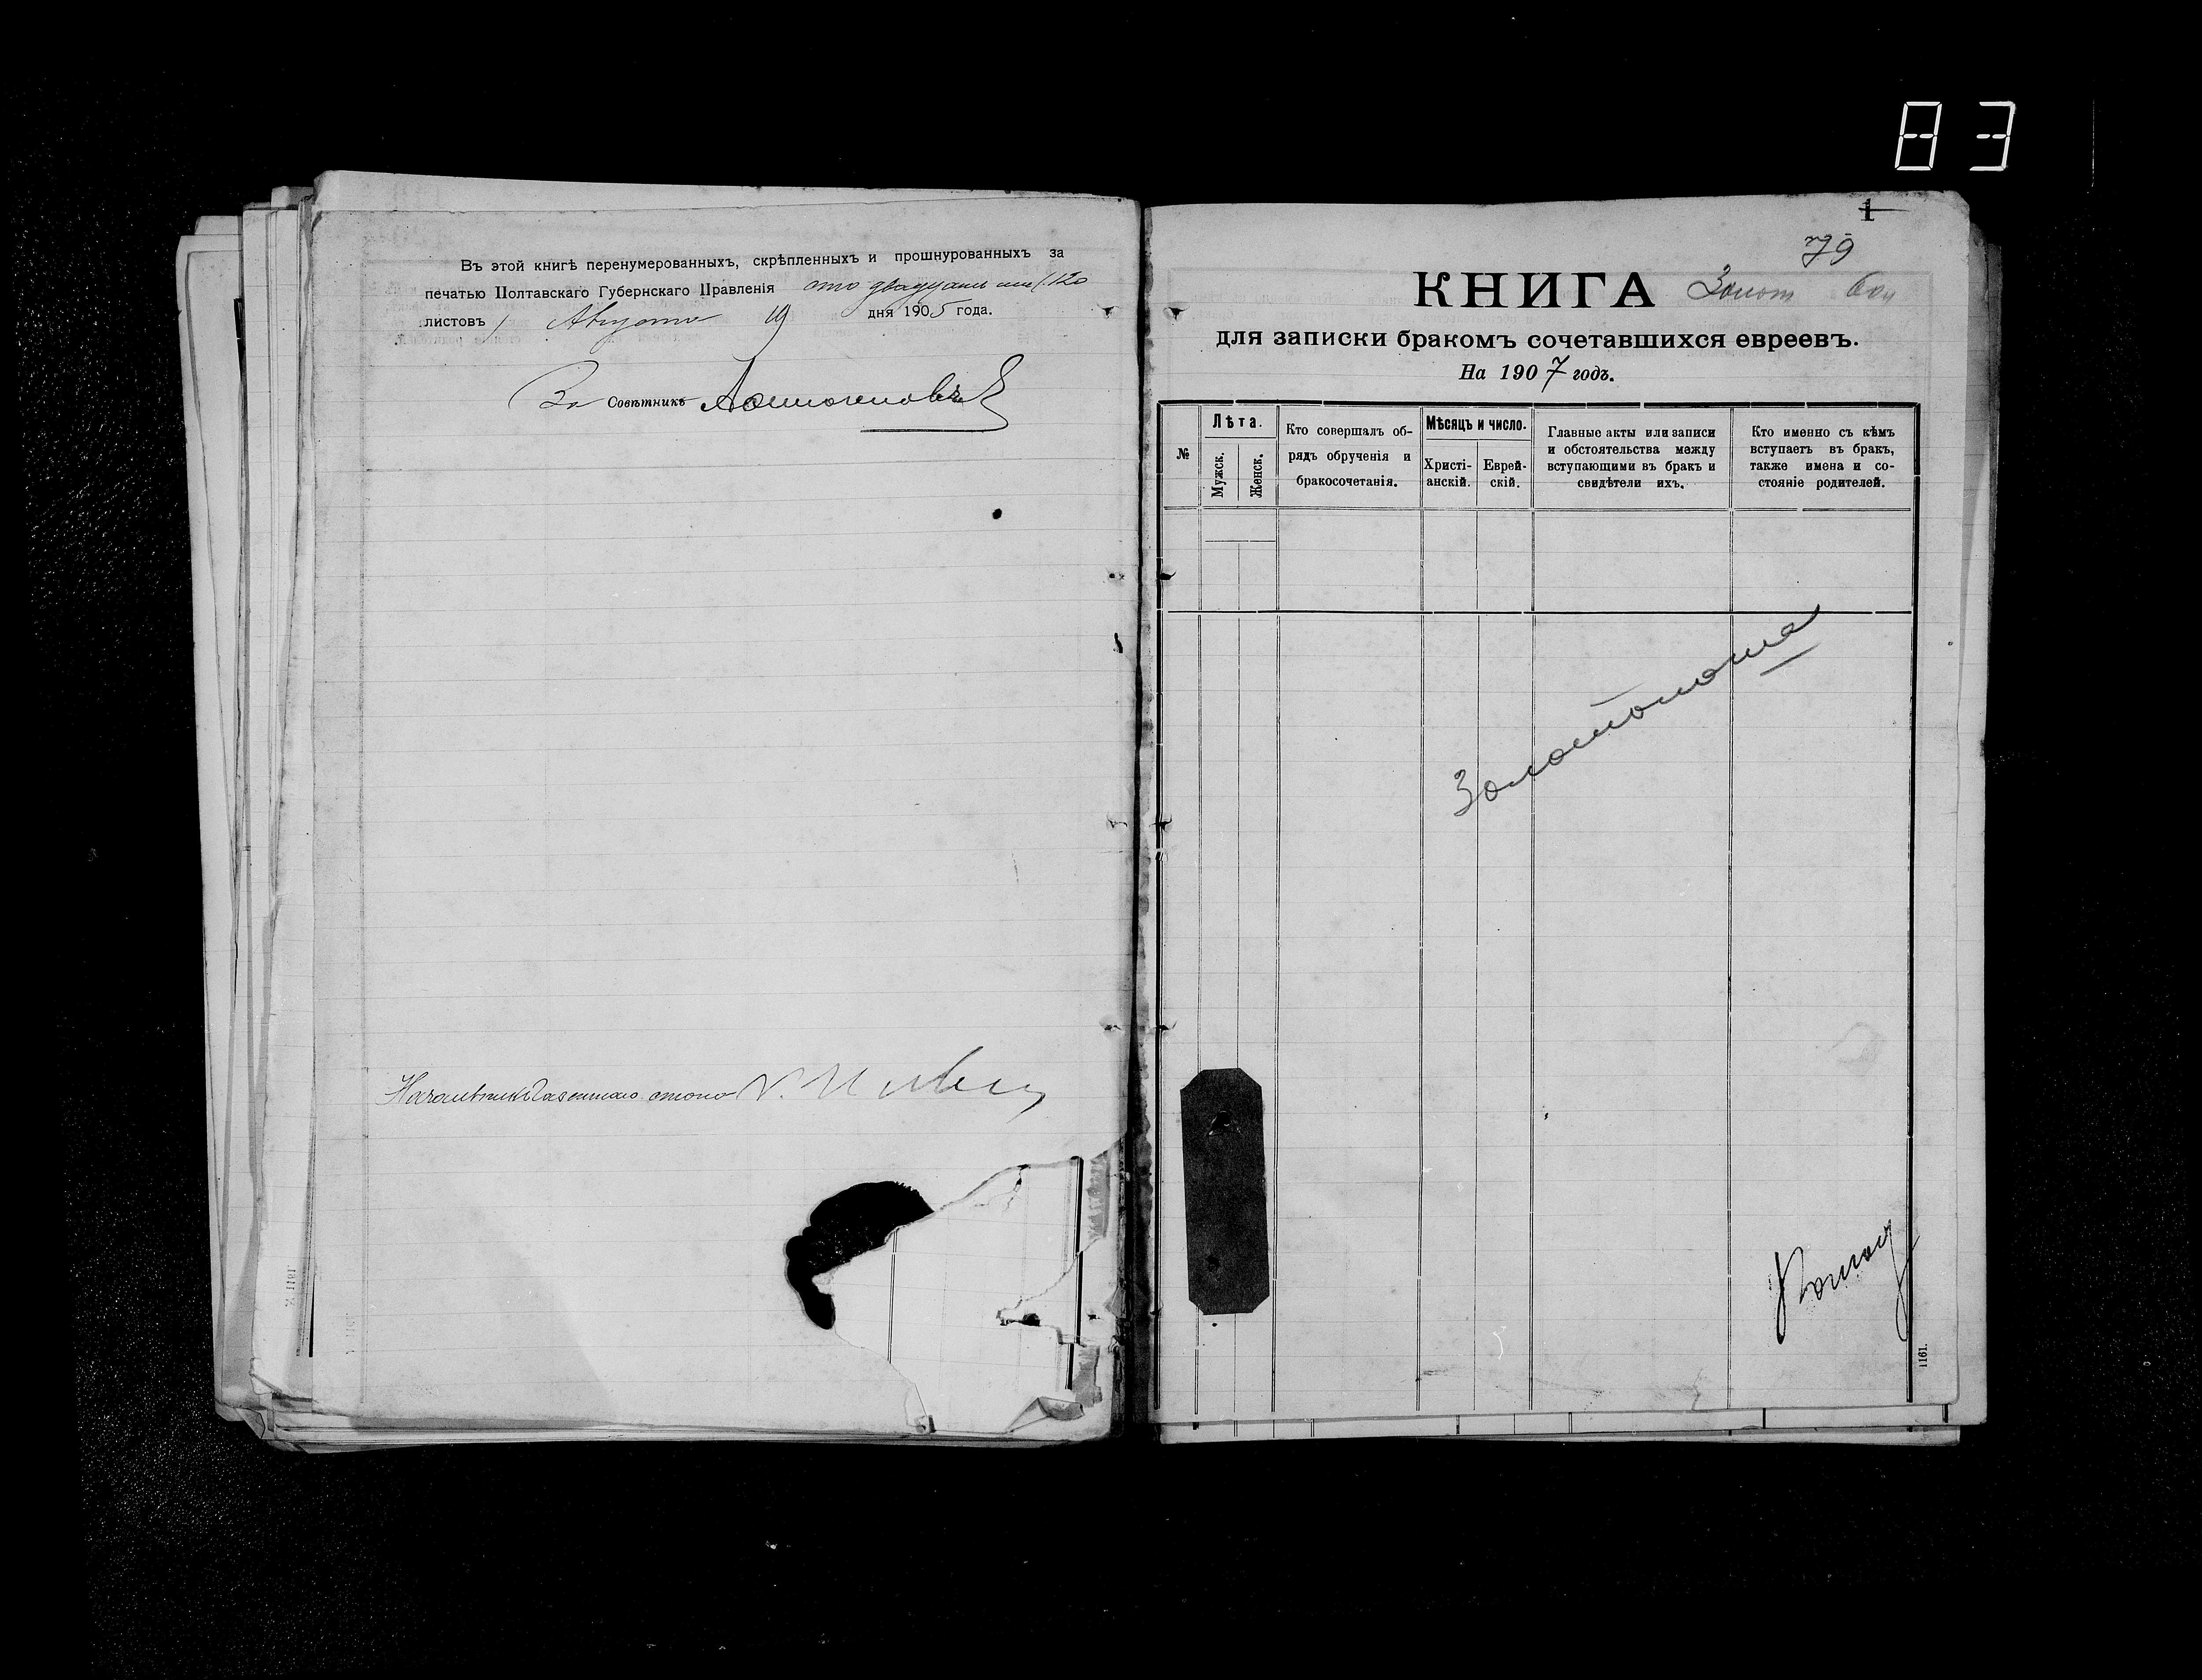 83
Въ этой книгѣ перенумерованныхъ, скрѣпленныхъ и прошнурованныхъ за
печатью Полтавскаго Губернскаго Правленія сто двадцать 120
листовъ, Августа 19 дня 1905 года.
За Совѣтникъ
Начальникъ Газетнаго стола
1
79
КНИГА Золот
для записки бракомъ сочетавшихся евреевъ.
На 1907 годъ.
№
Лѣта.
Мужск.
Женск.
Кто совершалъ об-
рядъ обрученія и
бракосочетанія.
Мѣсяцъ и число.
Христі-
анскій.
Еврей-
скій.
Главные акты или записи
и обстоятельства между
вступающими въ бракъ и
свидѣтели ихъ.
Кто именно съ кѣмъ
вступаетъ въ бракъ,
также имена и со-
стояніе родителей.
Золотоноша
1161.